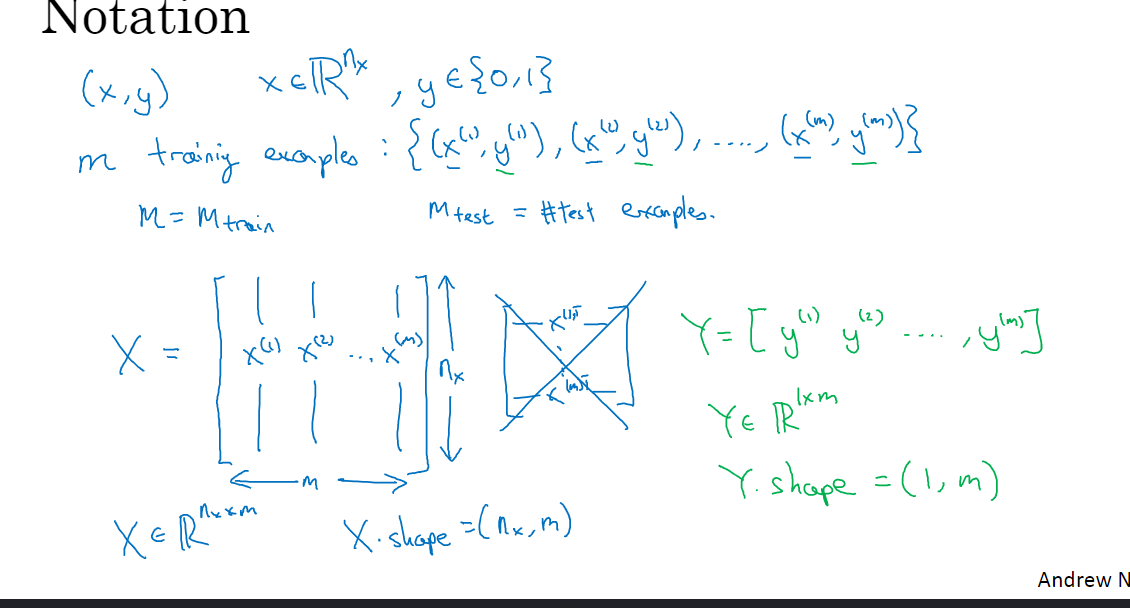 Notation
(x,y) x ∈ ℝ^{n_x}, y ∈ {0,1}
m training examples : {(x^{(1)}, y^{(1)}), (x^{(2)}, y^{(2)}), ...., (x^{(m)}, y^{(m)})}
M = M_{train} M_{test} = #test examples.
X = [ x^{(1)} x^{(2)} ... x^{(m)} ] n_x
m
x^{(1)T}
x^{(m)T}
Y = [ y^{(1)} y^{(2)} ...., y^{(m)} ]
Y ∈ ℝ^{1×m}
Y.shape = (1, m)
X ∈ ℝ^{n_x × m} X.shape = (n_x, m)
Andrew N